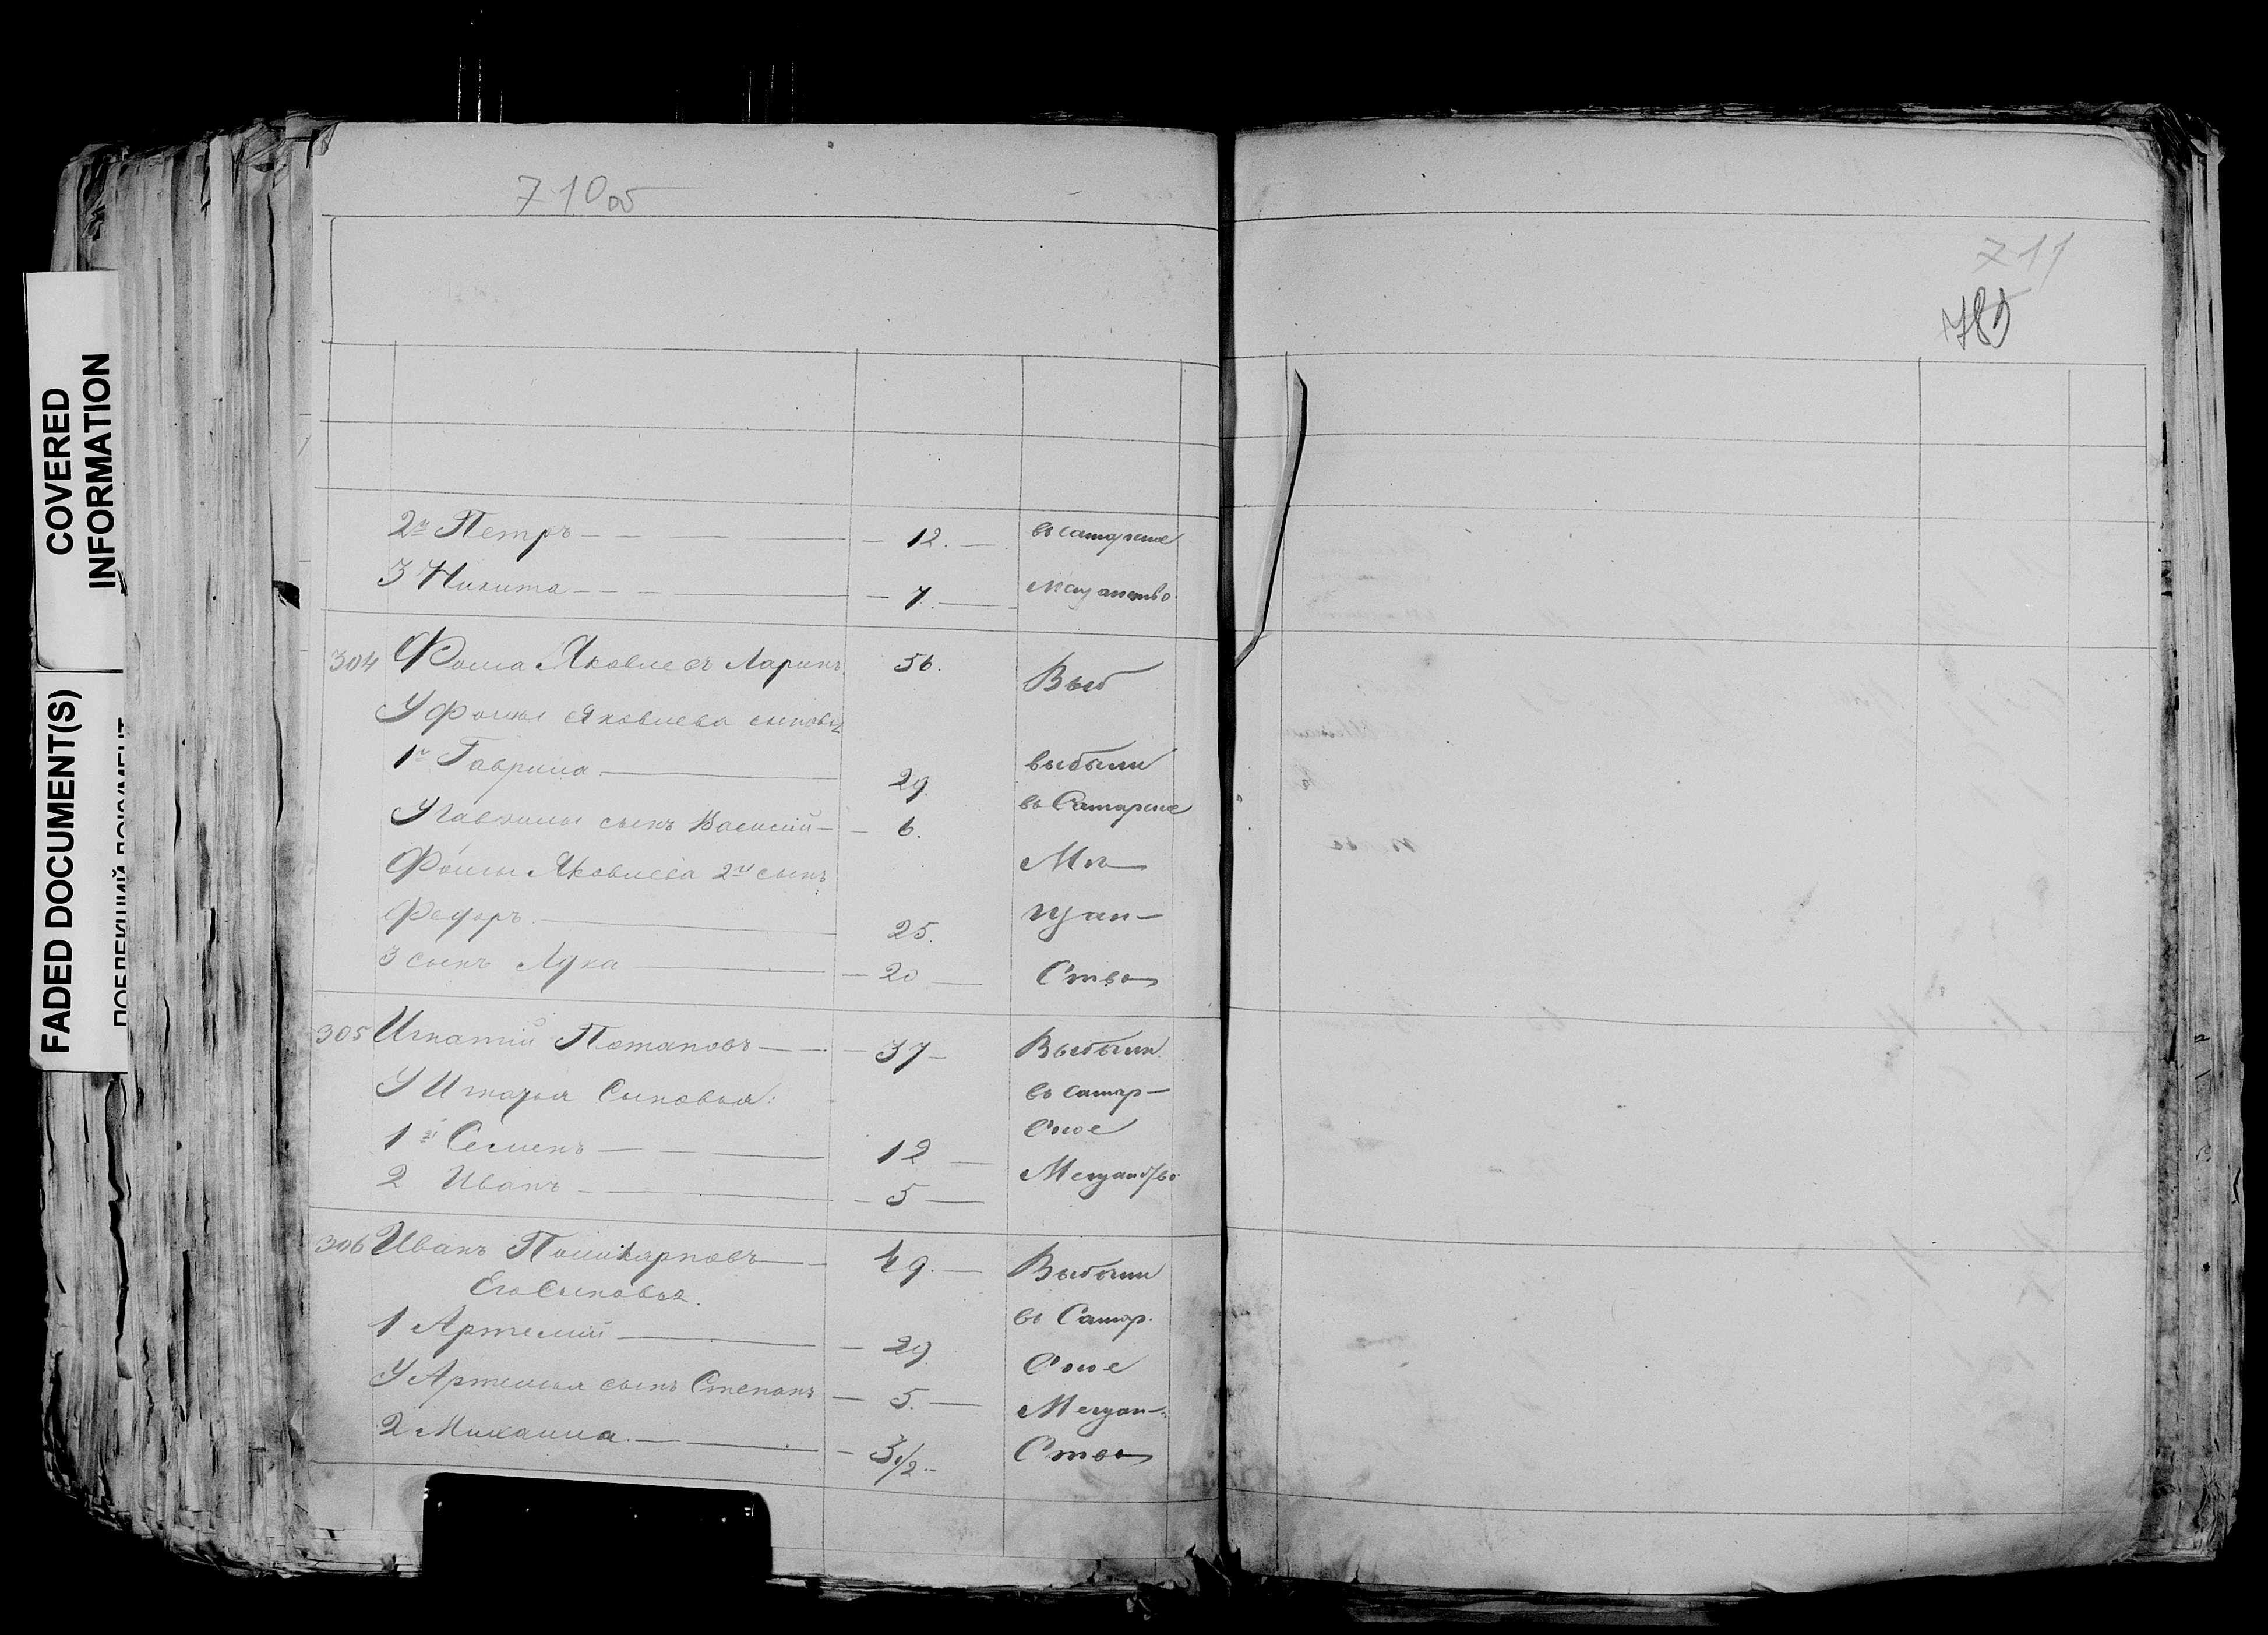 COVERED
INFORMATION
FADED DOCUMENT(S)
710 об
711
785
2й Петръ 12. въ самарское
3 Никита 7. мещанство
304 Фома Яковлевъ Ларинъ 56. Выб
У Фомы Яковлева сыновья
1й Гаврила 29. выбыли
У Гаврилы сынъ Василий 6. въ Самарское
Фомы Яковлева 2й сынъ Ме
Федоръ 25. щан
3 сынъ Лука 20 Ство
305 Игнатий Потаповъ 37 Выбыли
У Игнатья Сыновья: въ самар
Ское
1й Семенъ 12
2 Иванъ 5 Мещанство
306 Иванъ Поликарповъ 49. Выбыли
Его Сыновья. въ Самар.
1 Артемий 29. Ское
У Артемья сынъ Степанъ 5. Мещан
2 Михаила 3 1/2 Ство